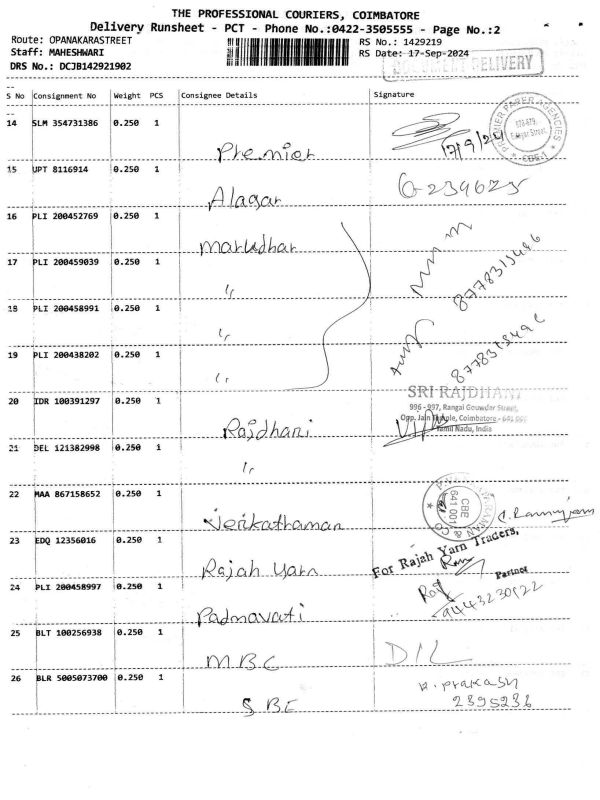 THE PROFESSIONAL COURIERS, COIMBATORE
Delivery Runsheet - PCT - Phone No.:0422-3505555 - Page No.:2
Route: OPANAKARASTREET
RS No.: 1429219
Staff: MAHESHWARI
RS Date: 17-Sep-2024
DRS No.: DCJB142921902
DELIVERY
S No Consignment No Weight PCS Consignee Details Signature
14 SLM 354731386 0.250 1 Premier 17/9/24
PREMIER PAPER AGENCIES
15 UPT 8116914 0.250 1 Alagar
16 PLI 200452769 0.250 1 Marudhar
17 PLI 200459039 0.250 1 "
18 PLI 200458991 0.250 1 "
19 PLI 200438202 0.250 1 "
20 IDR 100391297 0.250 1 Rajdhani
SRI RAJDHANI
996 - 997, Rangai Gowder Street,
Opp. Jain Temple, Coimbatore - 641 001
Tamil Nadu, India
21 DEL 121382998 0.250 1 "
22 MAA 867158652 0.250 1
CBE
641 001
23 EDQ 12356016 0.250 1 Rajah Yarn
For Rajah Yarn Traders,
Partner
24 PLI 200458997 0.250 1 Padmavati
25 BLT 100256938 0.250 1 M.B.C
26 BLR 5005073700 0.250 1 S BC
2395236